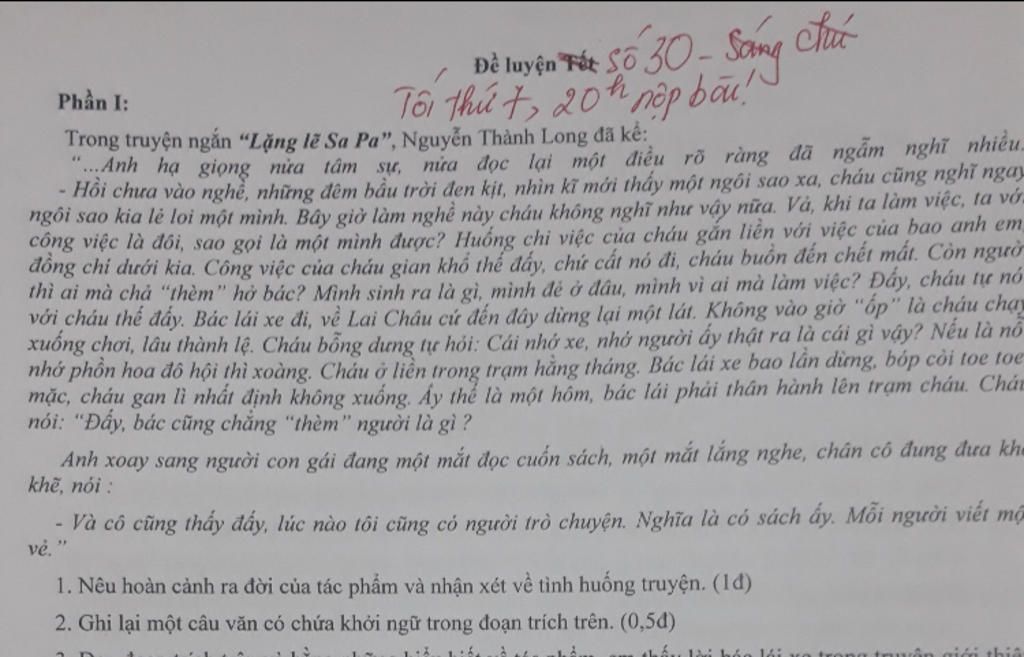 Đề luyện Tết số 30 - Sáng chủ
Phần I: Tối thứ 7, 20h nộp bài!
Trong truyện ngắn “Lặng lẽ Sa Pa”, Nguyễn Thành Long đã kể:
“...Anh hạ giọng nửa tâm sự, nửa đọc lại một điều rõ ràng đã ngẫm nghĩ nhiều.
- Hồi chưa vào nghề, những đêm bầu trời đen kịt, nhìn kĩ mới thấy một ngôi sao xa, cháu cũng nghĩ ngay
ngôi sao kia lẻ loi một mình. Bây giờ làm nghề này cháu không nghĩ như vậy nữa. Vả, khi ta làm việc, ta với
công việc là đôi, sao gọi là một mình được? Huống chi việc của cháu gắn liền với việc của bao anh em,
đồng chí dưới kia. Công việc của cháu gian khổ thế đấy, chứ cất nó đi, cháu buồn đến chết mất. Còn người
thì ai mà chả “thèm” hở bác? Mình sinh ra là gì, mình đẻ ở đâu, mình vì ai mà làm việc? Đấy, cháu tự nó
với cháu thế đấy. Bác lái xe đi, về Lai Châu cứ đến đây dừng lại một lát. Không vào giờ “ốp” là cháu chạy
xuống chơi, lâu thành lệ. Cháu bỗng dưng tự hỏi: Cái nhớ xe, nhớ người ấy thật ra là cái gì vậy? Nếu là nỗ
nhớ phồn hoa đô hội thì xoàng. Cháu ở liền trong trạm hằng tháng. Bác lái xe bao lần dừng, bóp còi toe toe
mặc, cháu gan lì nhất định không xuống. Ấy thế là một hôm, bác lái phải thân hành lên trạm cháu. Cháu
nói: “Đấy, bác cũng chẳng “thèm” người là gì ?
Anh xoay sang người con gái đang một mắt đọc cuốn sách, một mắt lắng nghe, chân cô đung đưa khe
khẽ, nói :
- Và cô cũng thấy đấy, lúc nào tôi cũng có người trò chuyện. Nghĩa là có sách ấy. Mỗi người viết mộ
vẻ.”
1. Nêu hoàn cảnh ra đời của tác phẩm và nhận xét về tình huống truyện. (1đ)
2. Ghi lại một câu văn có chứa khởi ngữ trong đoạn trích trên. (0,5đ)